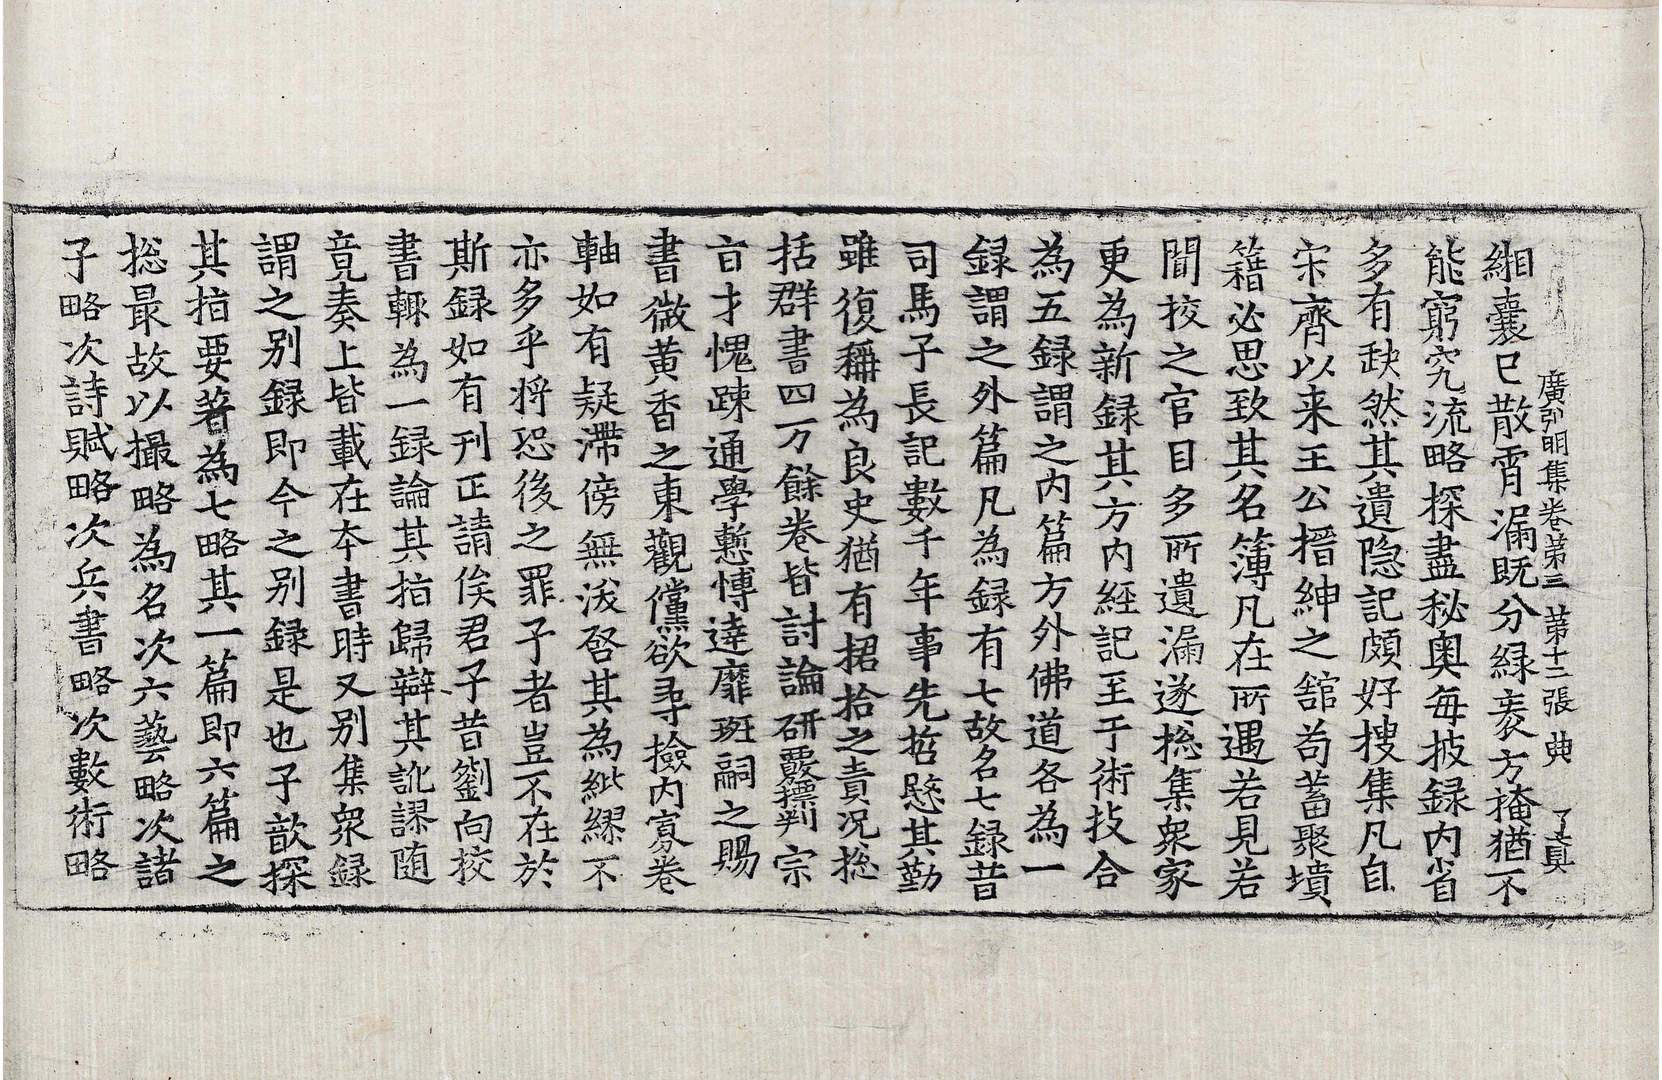 廣弘明集卷第三 第十二張 典 了真
緗囊已散宵漏既分緑袠方掩猶不
能窮究流略探盡秘奥每披録内省
多有缺然其遺隐記頗好搜集凡自
宋齊以来王公搢紳之舘苟蓄聚墳
籍必思致其名簿凡在所遇若見若
聞挍之官目多所遺漏遂捴集衆家
更為新録其方内經記至于術技合
為五録謂之内篇方外佛道各為一
録謂之外篇凡為録有七故名七録昔
司馬子長記數千年事先哲愍其勤
雖復稱為良史猶有捃拾之責况捴
括群書四万餘卷皆討論研覈摽判宗
旨才愧踈通學慙博達靡班嗣之賜
書微黄香之東觀儻欲尋撿内寡卷
軸如有疑滯傍無沷啓其為紕繆不
亦多乎将恐後之罪予者豈不在於
斯録如有刊正請俟君子昔劉向挍
書輙為一録論其指歸辯其訛謬随
竟奏上皆載在本書時又別集衆録
謂之別録即今之別録是也子歆探
其指要著為七略其一篇即六篇之
捴最故以撮略為名次六藝略次諸
子略次詩賦略次兵書略次數術略